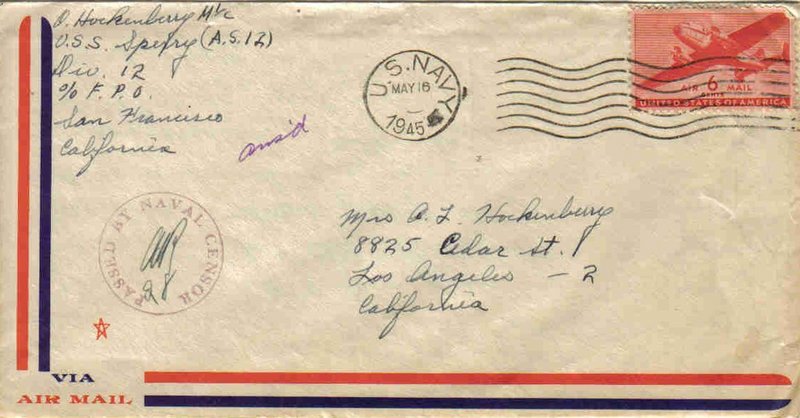 O. Hockenberry M1/c
U.S.S. Sperry (A.S.12)
Div. 12
c/o F.P.O.
San Francisco
California
ans'd
U.S. NAVY
MAY 16
1945
AIR 6 MAIL
CENTS
UNITED STATES OF AMERICA
PASSED BY NAVAL CENSOR
28
Mrs A. L. Hockenberry
8825 Cedar St.
Los Angeles - 2
California
VIA
AIR MAIL